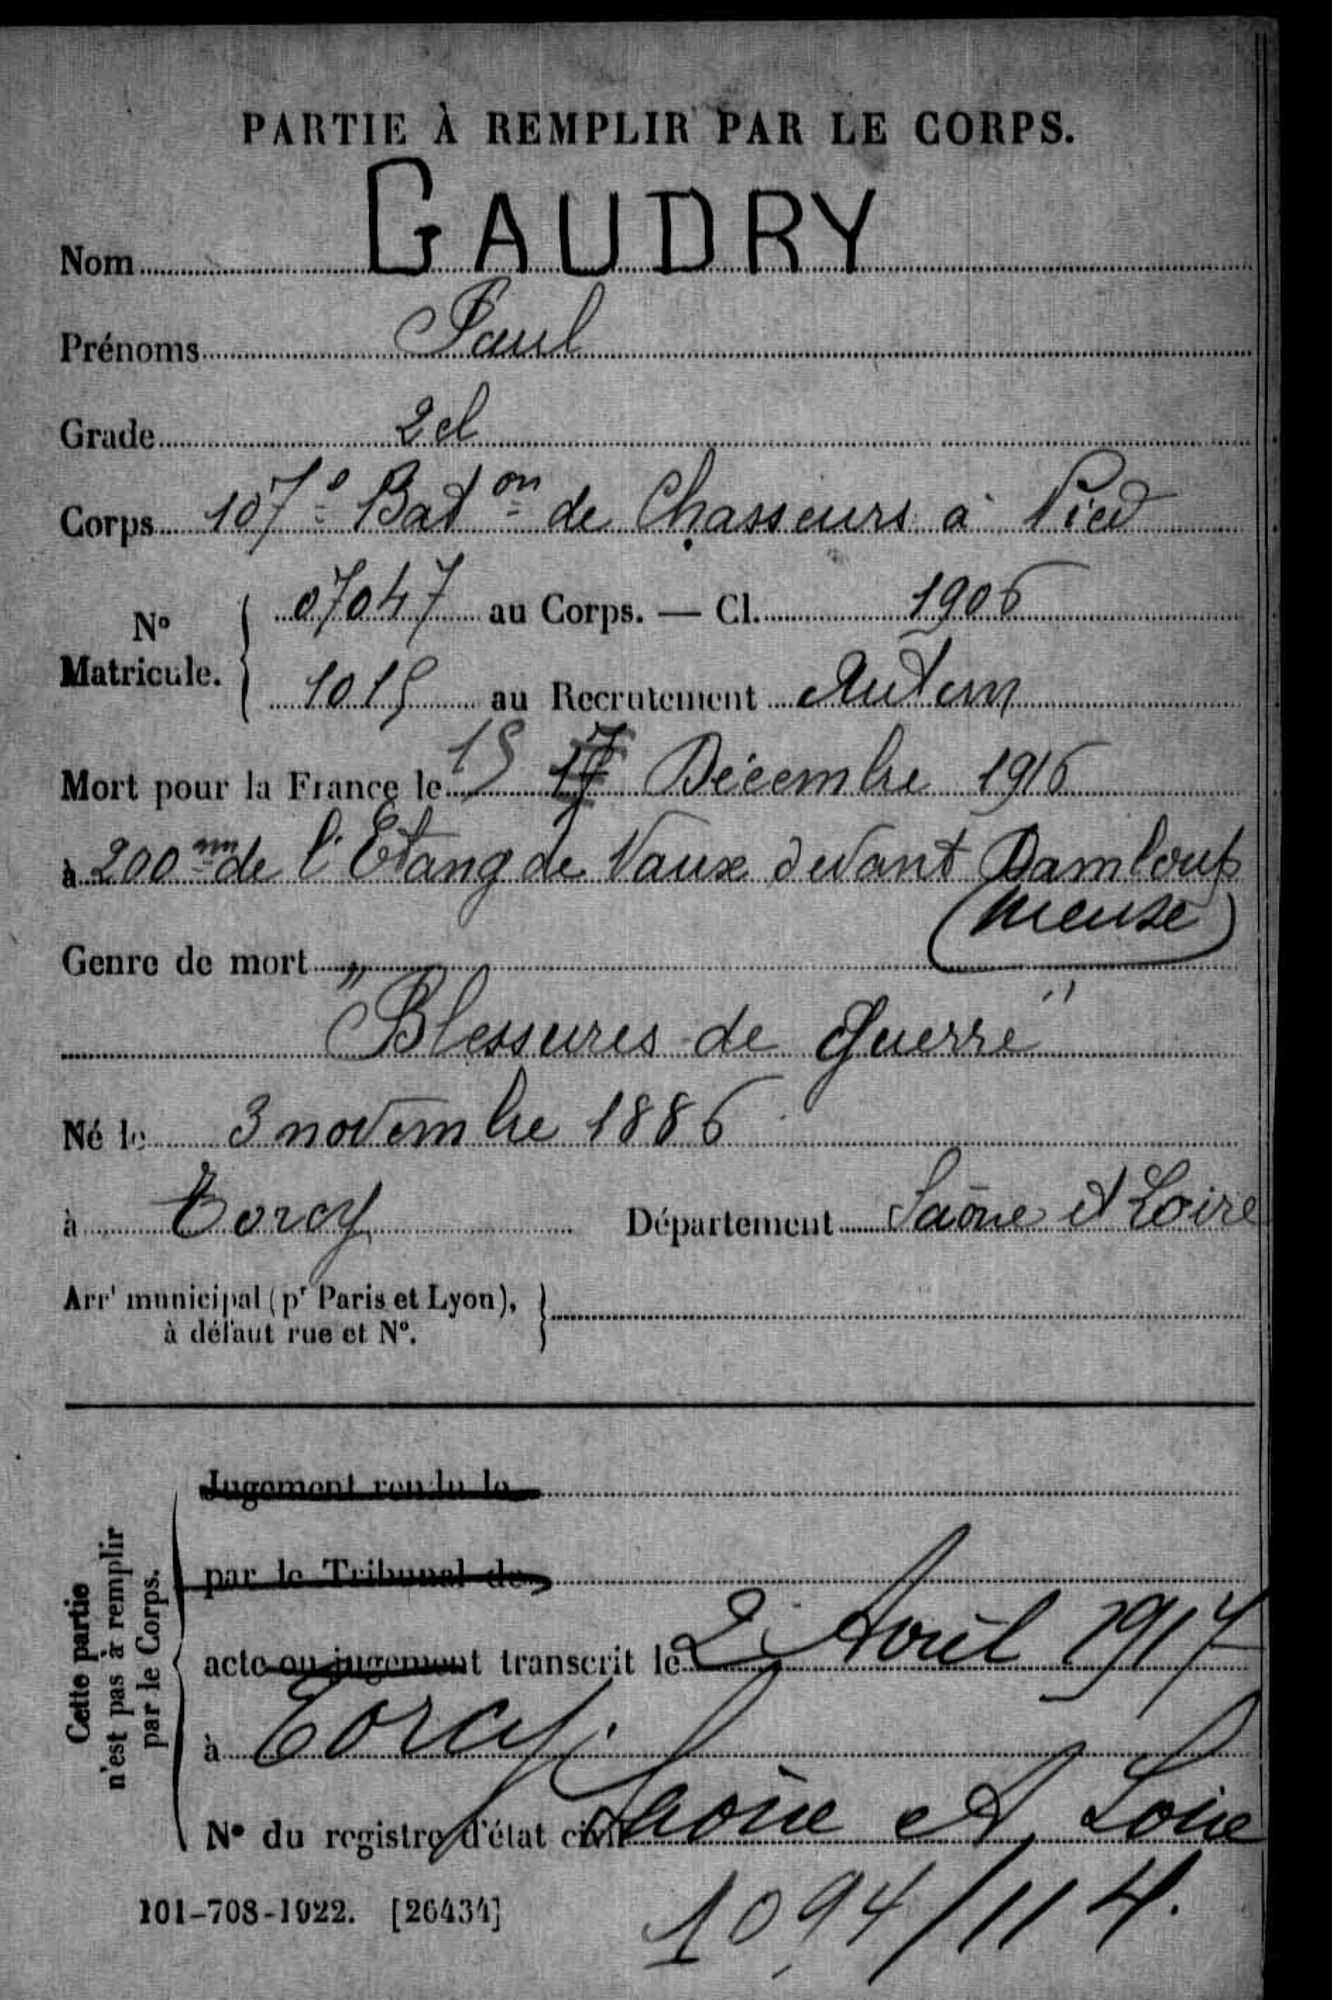 PARTIE À REMPLIR PAR LE CORPS.
Nom GAUDRY
Prénoms Paul
Grade 2 cl
Corps 107e Baton de Chasseurs à Pied
No Matricule. 07047 au Corps. — Cl. 1906
1015 au Recrutement Autun
Mort pour la France le 15 Décembre 1916
à 200 m de l'Etang de Vaux devant Damloup
(Meuse)
Genre de mort
"Blessures de Guerre"
Né le 3 novembre 1886
à Torcy Département Saône et Loire
Arrt municipal (pr Paris et Lyon),
à défaut rue et No.
Cette partie
n'est pas à remplir
par le Corps.
Jugement rendu le
par le Tribunal de
acte ou jugement transcrit le 2 Août 1917
à Torcy.
Saône et Loire
No du registre d'état civil
101-708-1922. [26434]
1094/114.